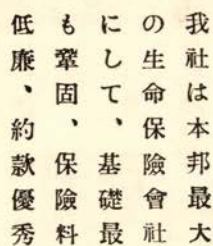 我社は本邦最大
の生命保險會社
にして、基礎最
も鞏固、保險料
低廉、約款優秀